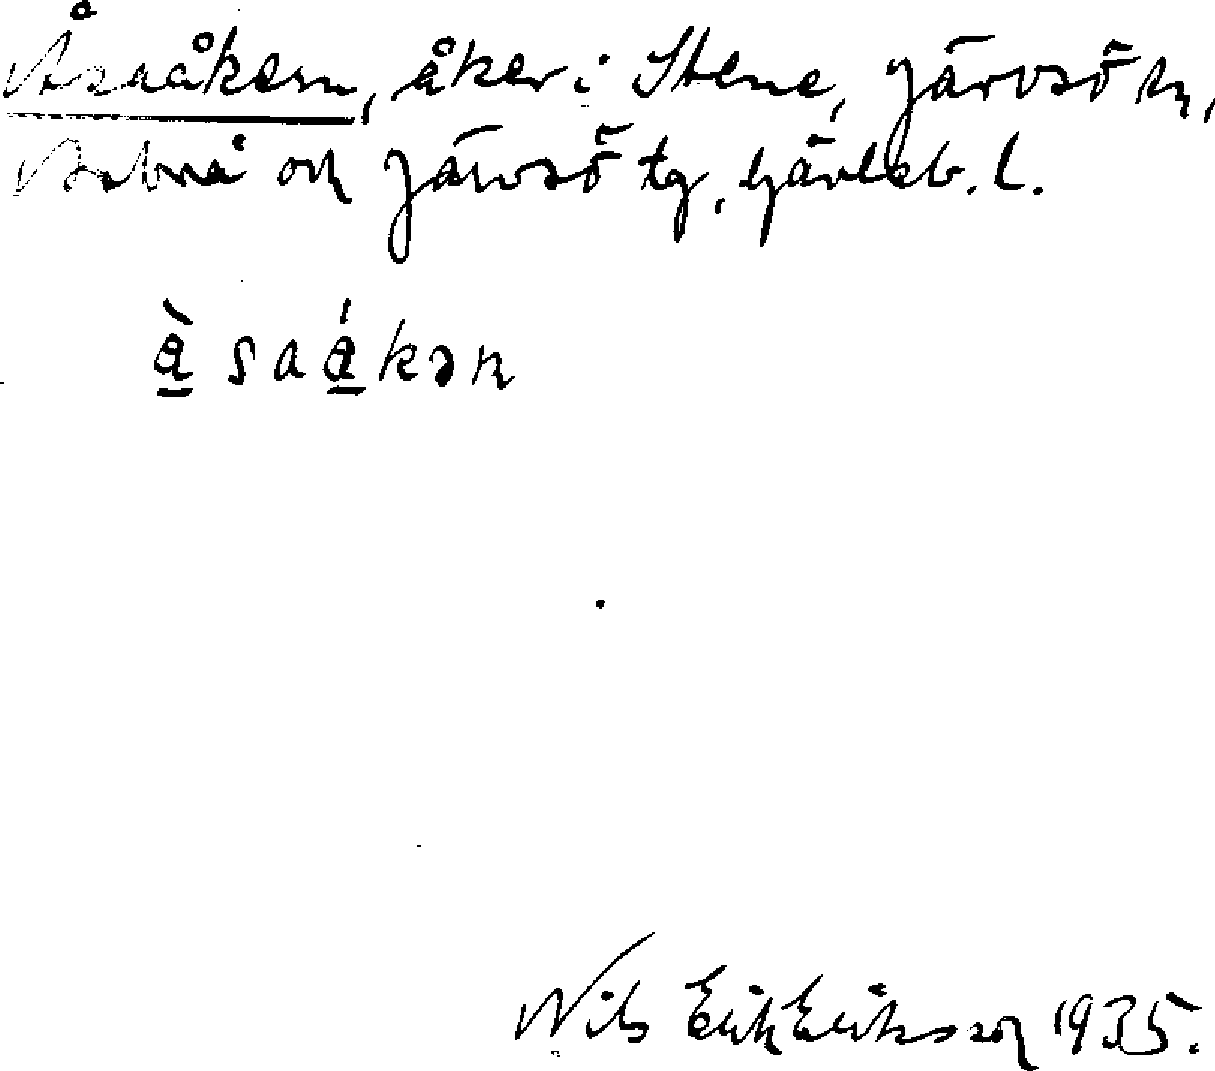 Åsaåkern, åker i Stene, Järvsö sn,
Arbrå och Järvsö tg, Gävleb. l.
å̱̀ s a ǻ̱ k ə n
Nils Erik Eriksson 1935.